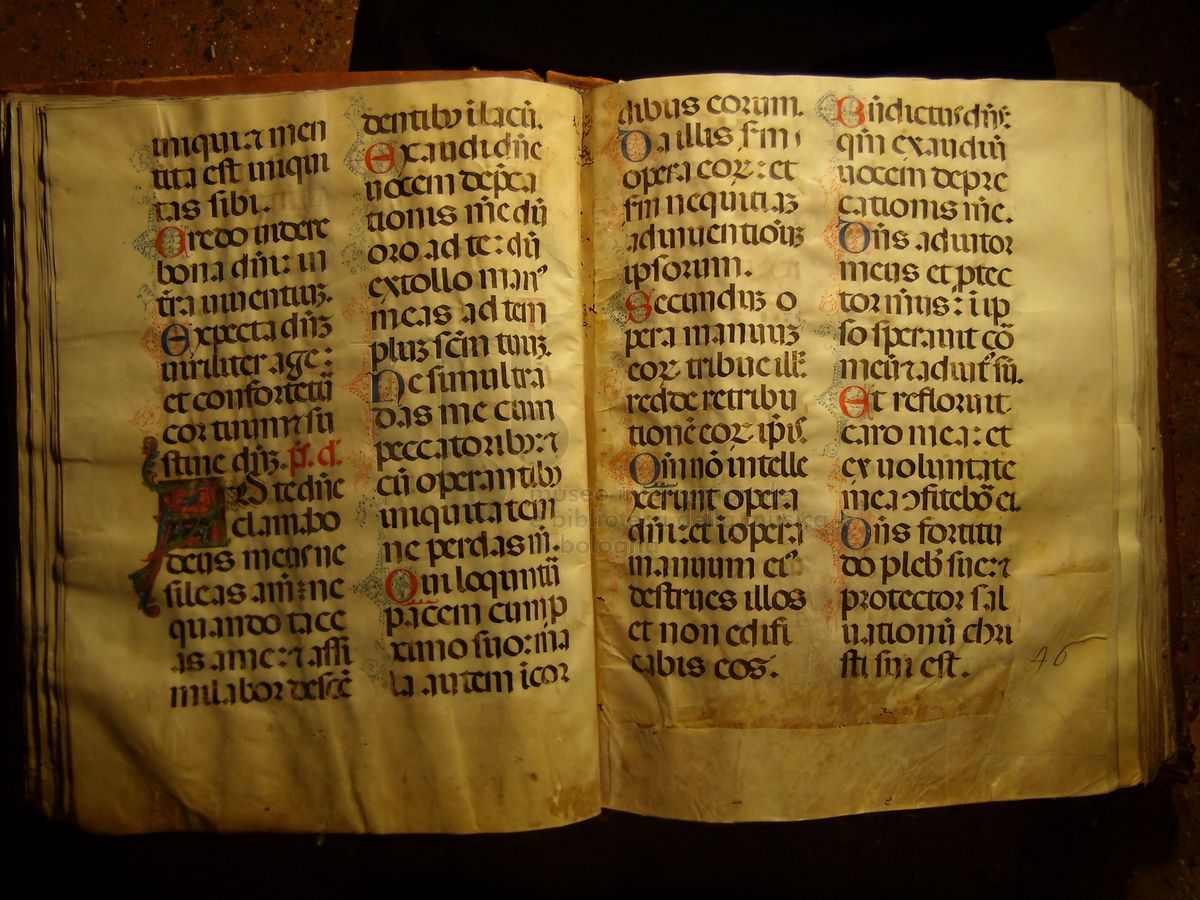 iniqui⁊ men
tita est iniqui
tas sibi.
Credo uidere
bona dñi: in
t̃ra uiuentiuꝫ.
Expecta dñꝫ
uiriliter age:
et confortetũ
cor tuum ⁊ su
stine dñꝫ. ps. d.
AD te dñe
clamabo
deus meus ne
sileas a mẽ: ne
quando tace
as a me: ⁊ assi
milabor descẽ
dentibꝫ i lacũ.
Exaudi dñe
uocem dep̃ca
tionis m̃e dũ
oro ad te: dũ
extollo manꝰ
meas ad tem
pluꝫ scm̃ tuuꝫ.
Ne simul tra
das me cum
peccatoribꝫ: ⁊
cũ operantibꝫ
iniquitatem
ne perdas m̃.
Qui loquntũ
pacem cum p
ximo suo: m̃a
la autem i cor
dibus eorum.
Da illis s̃m
opera eoꝝ: et
s̃m nequitiaꝫ
adinuentiõuꝫ
ipsorum.
Secunduꝫ o
pera manuuꝫ
eoꝝ tribue ill̃:
redde retribu
tionẽ eoꝝ ip̃is.
Qm̃ nõ intelle
xerunt opera
dñi: et i opera
manuum eiꝰ
destrues illos
et non edifi
cabis eos.
Bñdictus dñs:
qm̃ exaudiũ
uocem depre
cationis m̃e.
Dñs adiutor
meus et ꝓtec
tor m̃us: i ip
so sperauit cõ
meũ ⁊ adiut̃ sũ.
Et refloruit
caro mea: et
ex uoluntate
mea ꝯfitebõ ei.
Dñs fortitu
do pleb̃ sue: ⁊
protector sal
uationũ chri
sti sui est.
46
museo
biblioteca della musica
bologna